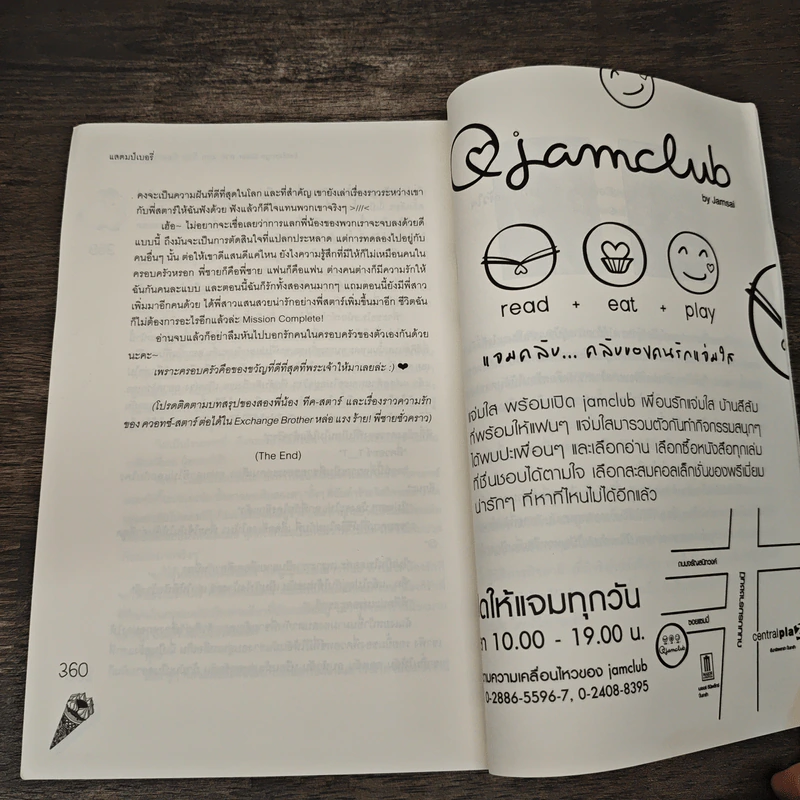 แสตมป์เบอรี่
คงจะเป็นความฝันที่ดีที่สุดในโลก และที่สำคัญ เขายังเล่าเรื่องราวระหว่างเขา
กับพี่สตาร์ให้ฉันฟังด้วย ฟังแล้วก็ดีใจแทนพวกเขาจริงๆ >///<
เฮ้อ~ ไม่อยากจะเชื่อเลยว่าการแลกพี่น้องของพวกเราจะจบลงด้วยดี
แบบนี้ ถึงมันจะเป็นการตัดสินใจที่แปลกประหลาด แต่การทดลองไปอยู่กับ
คนอื่นๆ นั้น ต่อให้เขาดีแสนดีแค่ไหน ยังไงความรู้สึกที่มีให้ก็ไม่เหมือนคนใน
ครอบครัวหรอก พี่ชายก็คือพี่ชาย แฟนก็คือแฟน ต่างคนต่างก็มีความรักให้
ฉันกันคนละแบบ และตอนนี้ฉันก็รักทั้งสองคนมากๆ แถมตอนนี้ยังมีพี่สาว
เพิ่มมาอีกคนด้วย ได้พี่สาวแสนสวยน่ารักอย่างพี่สตาร์เพิ่มขึ้นมาอีก ชีวิตฉัน
ก็ไม่ต้องการอะไรอีกแล้วล่ะ Mission Complete!
อ่านจบแล้วก็อย่าลืมหันไปบอกรักคนในครอบครัวของตัวเองกันด้วย
นะคะ~
เพราะครอบครัวคือของขวัญที่ดีที่สุดที่พระเจ้าให้มาเลยล่ะ :) ❤
(โปรดติดตามบทสรุปของสองพี่น้อง ทีค-สตาร์ และเรื่องราวความรัก
ของ ควอทช์-สตาร์ ต่อได้ใน Exchange Brother หล่อ แรง ร้าย! พี่ชายชั่วคราว)
(The End)
360
jamclub
by Jamsai
read + eat + play
แจมคลับ... คลับของคนรักแจ่มใส
แจ่มใส พร้อมเปิด jamclub เพื่อนรักแจ่มใส บ้านสีส้ม
ที่พร้อมให้แฟนๆ แจ่มใสมารวมตัวกันทำกิจกรรมสนุกๆ
ได้พบปะเพื่อนๆ และเลือกอ่าน เลือกซื้อหนังสือทุกเล่ม
ที่ชื่นชอบได้ตามใจ เลือกสะสมคอลเล็กชั่นของพรีเมี่ยม
น่ารักๆ ที่หาที่ไหนไม่ได้อีกแล้ว
ถนนจรัญสนิทวงศ์
ให้แจมทุกวัน
ถนนบรมราชชนนี
ซอยแซมมี่
10.00 - 19.00 น.
jamclub
centralpla
ความเคลื่อนไหวของ jamclub
0-2886-5596-7, 0-2408-8395